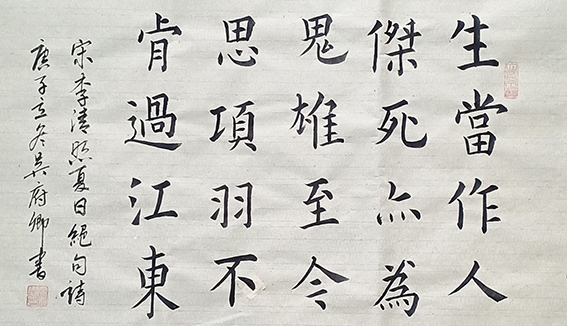 生當作人
傑死亦為
鬼雄至今
思項羽不
肯過江東
宋李清照夏日絕句詩
庚子立冬吳府卿書